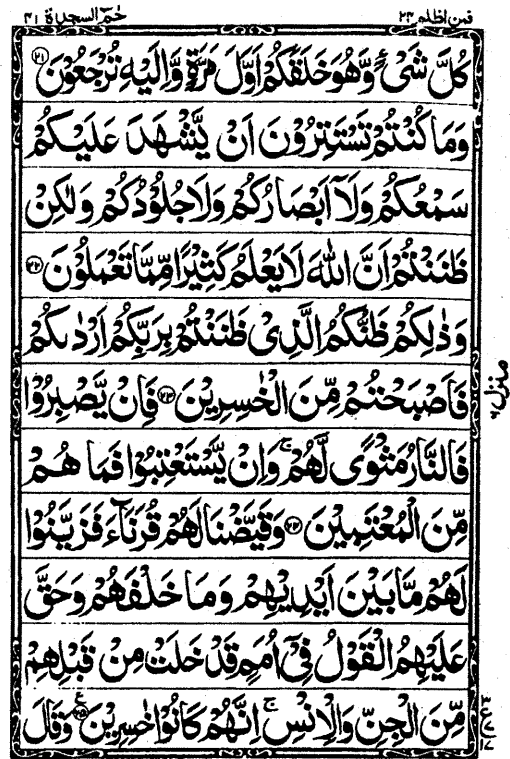 فمن اظلم ٢٤
حٰمٓ السجدة ٤١
كُلَّ شَیْءٍ وَّهُوَ خَلَقَكُمْ اَوَّلَ مَرَّةٍ وَّاِلَیْهِ تُرْجَعُوْنَ ۝۲۱
وَمَا كُنْتُمْ تَسْتَتِرُوْنَ اَنْ یَّشْهَدَ عَلَیْكُمْ
سَمْعُكُمْ وَلَاۤ اَبْصَارُكُمْ وَلَا جُلُوْدُكُمْ وَلٰكِنْ
ظَنَنْتُمْ اَنَّ اللّٰهَ لَا یَعْلَمُ كَثِیْرًا مِّمَّا تَعْمَلُوْنَ ۝۲۲
وَذٰلِكُمْ ظَنُّكُمُ الَّذِیْ ظَنَنْتُمْ بِرَبِّكُمْ اَرْدٰىكُمْ
فَاَصْبَحْتُمْ مِّنَ الْخٰسِرِیْنَ ۝۲۳ فَاِنْ یَّصْبِرُوْا
فَالنَّارُ مَثْوًی لَّهُمْ ۚ وَاِنْ یَّسْتَعْتِبُوْا فَمَا هُمْ
مِّنَ الْمُعْتَبِیْنَ ۝۲۴ وَقَیَّضْنَا لَهُمْ قُرَنَآءَ فَزَیَّنُوْا
لَهُمْ مَّا بَیْنَ اَیْدِیْهِمْ وَمَا خَلْفَهُمْ وَحَقَّ
عَلَیْهِمُ الْقَوْلُ فِیْۤ اُمَمٍ قَدْ خَلَتْ مِنْ قَبْلِهِمْ
مِّنَ الْجِنِّ وَالْاِنْسِ ۚ اِنَّهُمْ كَانُوْا خٰسِرِیْنَ ۝۲۵ وَقَالَ
منزل ۶
ع